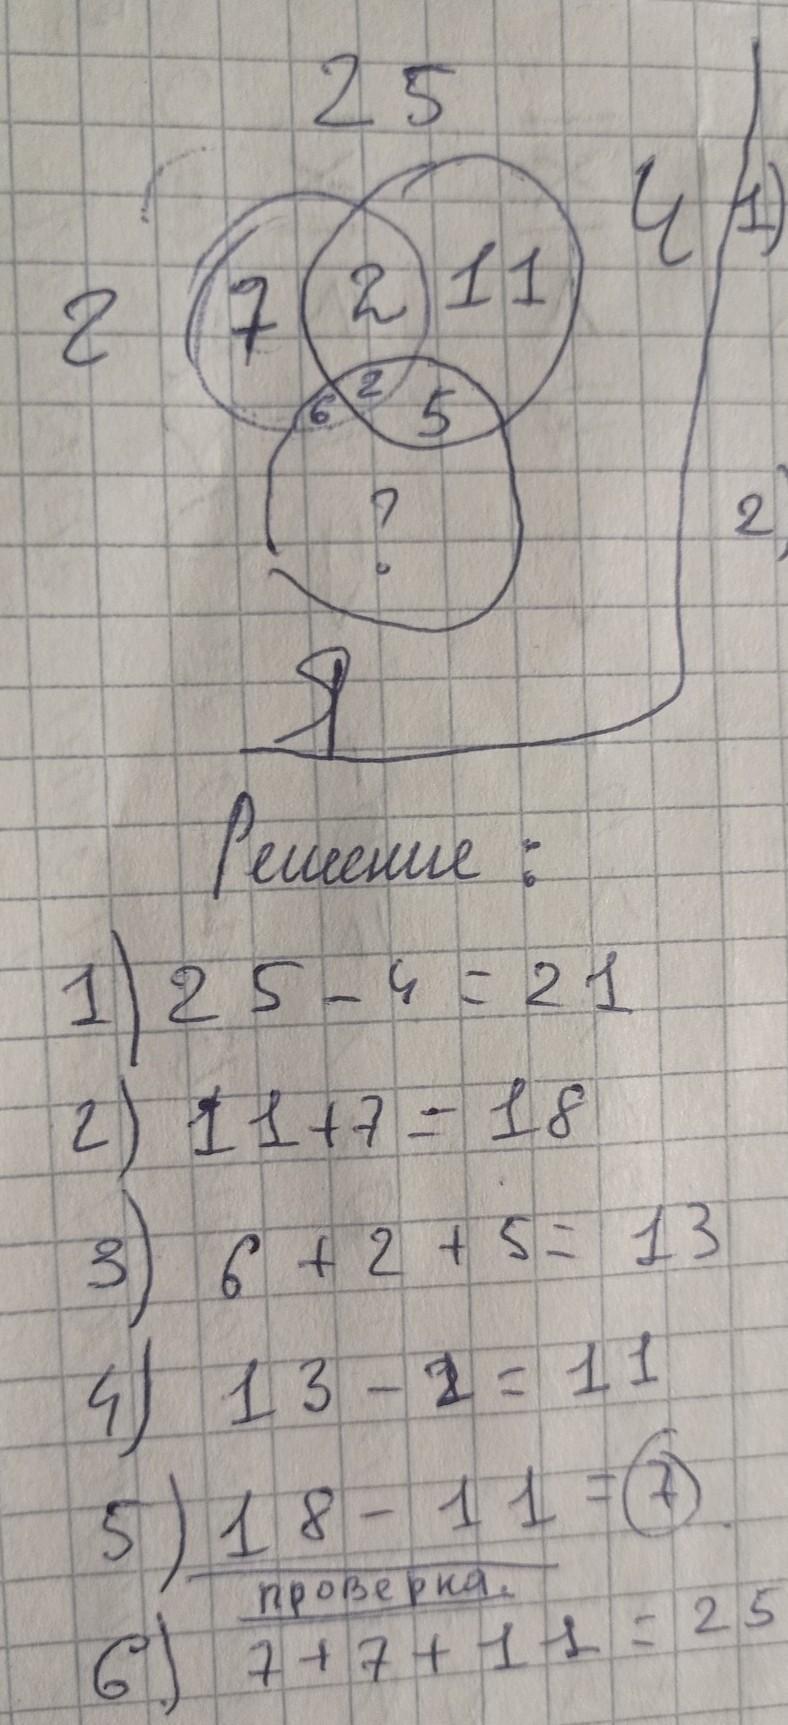 25
4
1)
2
7
2
11
2
6
5
2)
?
Я
Решение:
1) 25 - 4 = 21
2) 11 + 7 = 18
3) 6 + 2 + 5 = 13
4) 13 - 2 = 11
5) 18 - 11 = 7
проверка.
6) 7 + 7 + 11 = 25